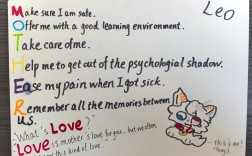 Leo
Make sure I am safe.
Offer me with a good learning environment.
Take care of me.
Help me to get out of the psychological shadow.
Ease my pain when I got sick.
Remember all the memories between
us.
"What's Love?"
"Love is mother's love for you. but we often
this kind of love."
this is me!